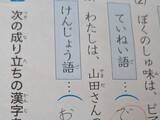 (2) ぼくのしゅ味は、ピ
ていねい語…(
わたしは 山田さん
けんじょう語…(
次の成り立ちの漢字を